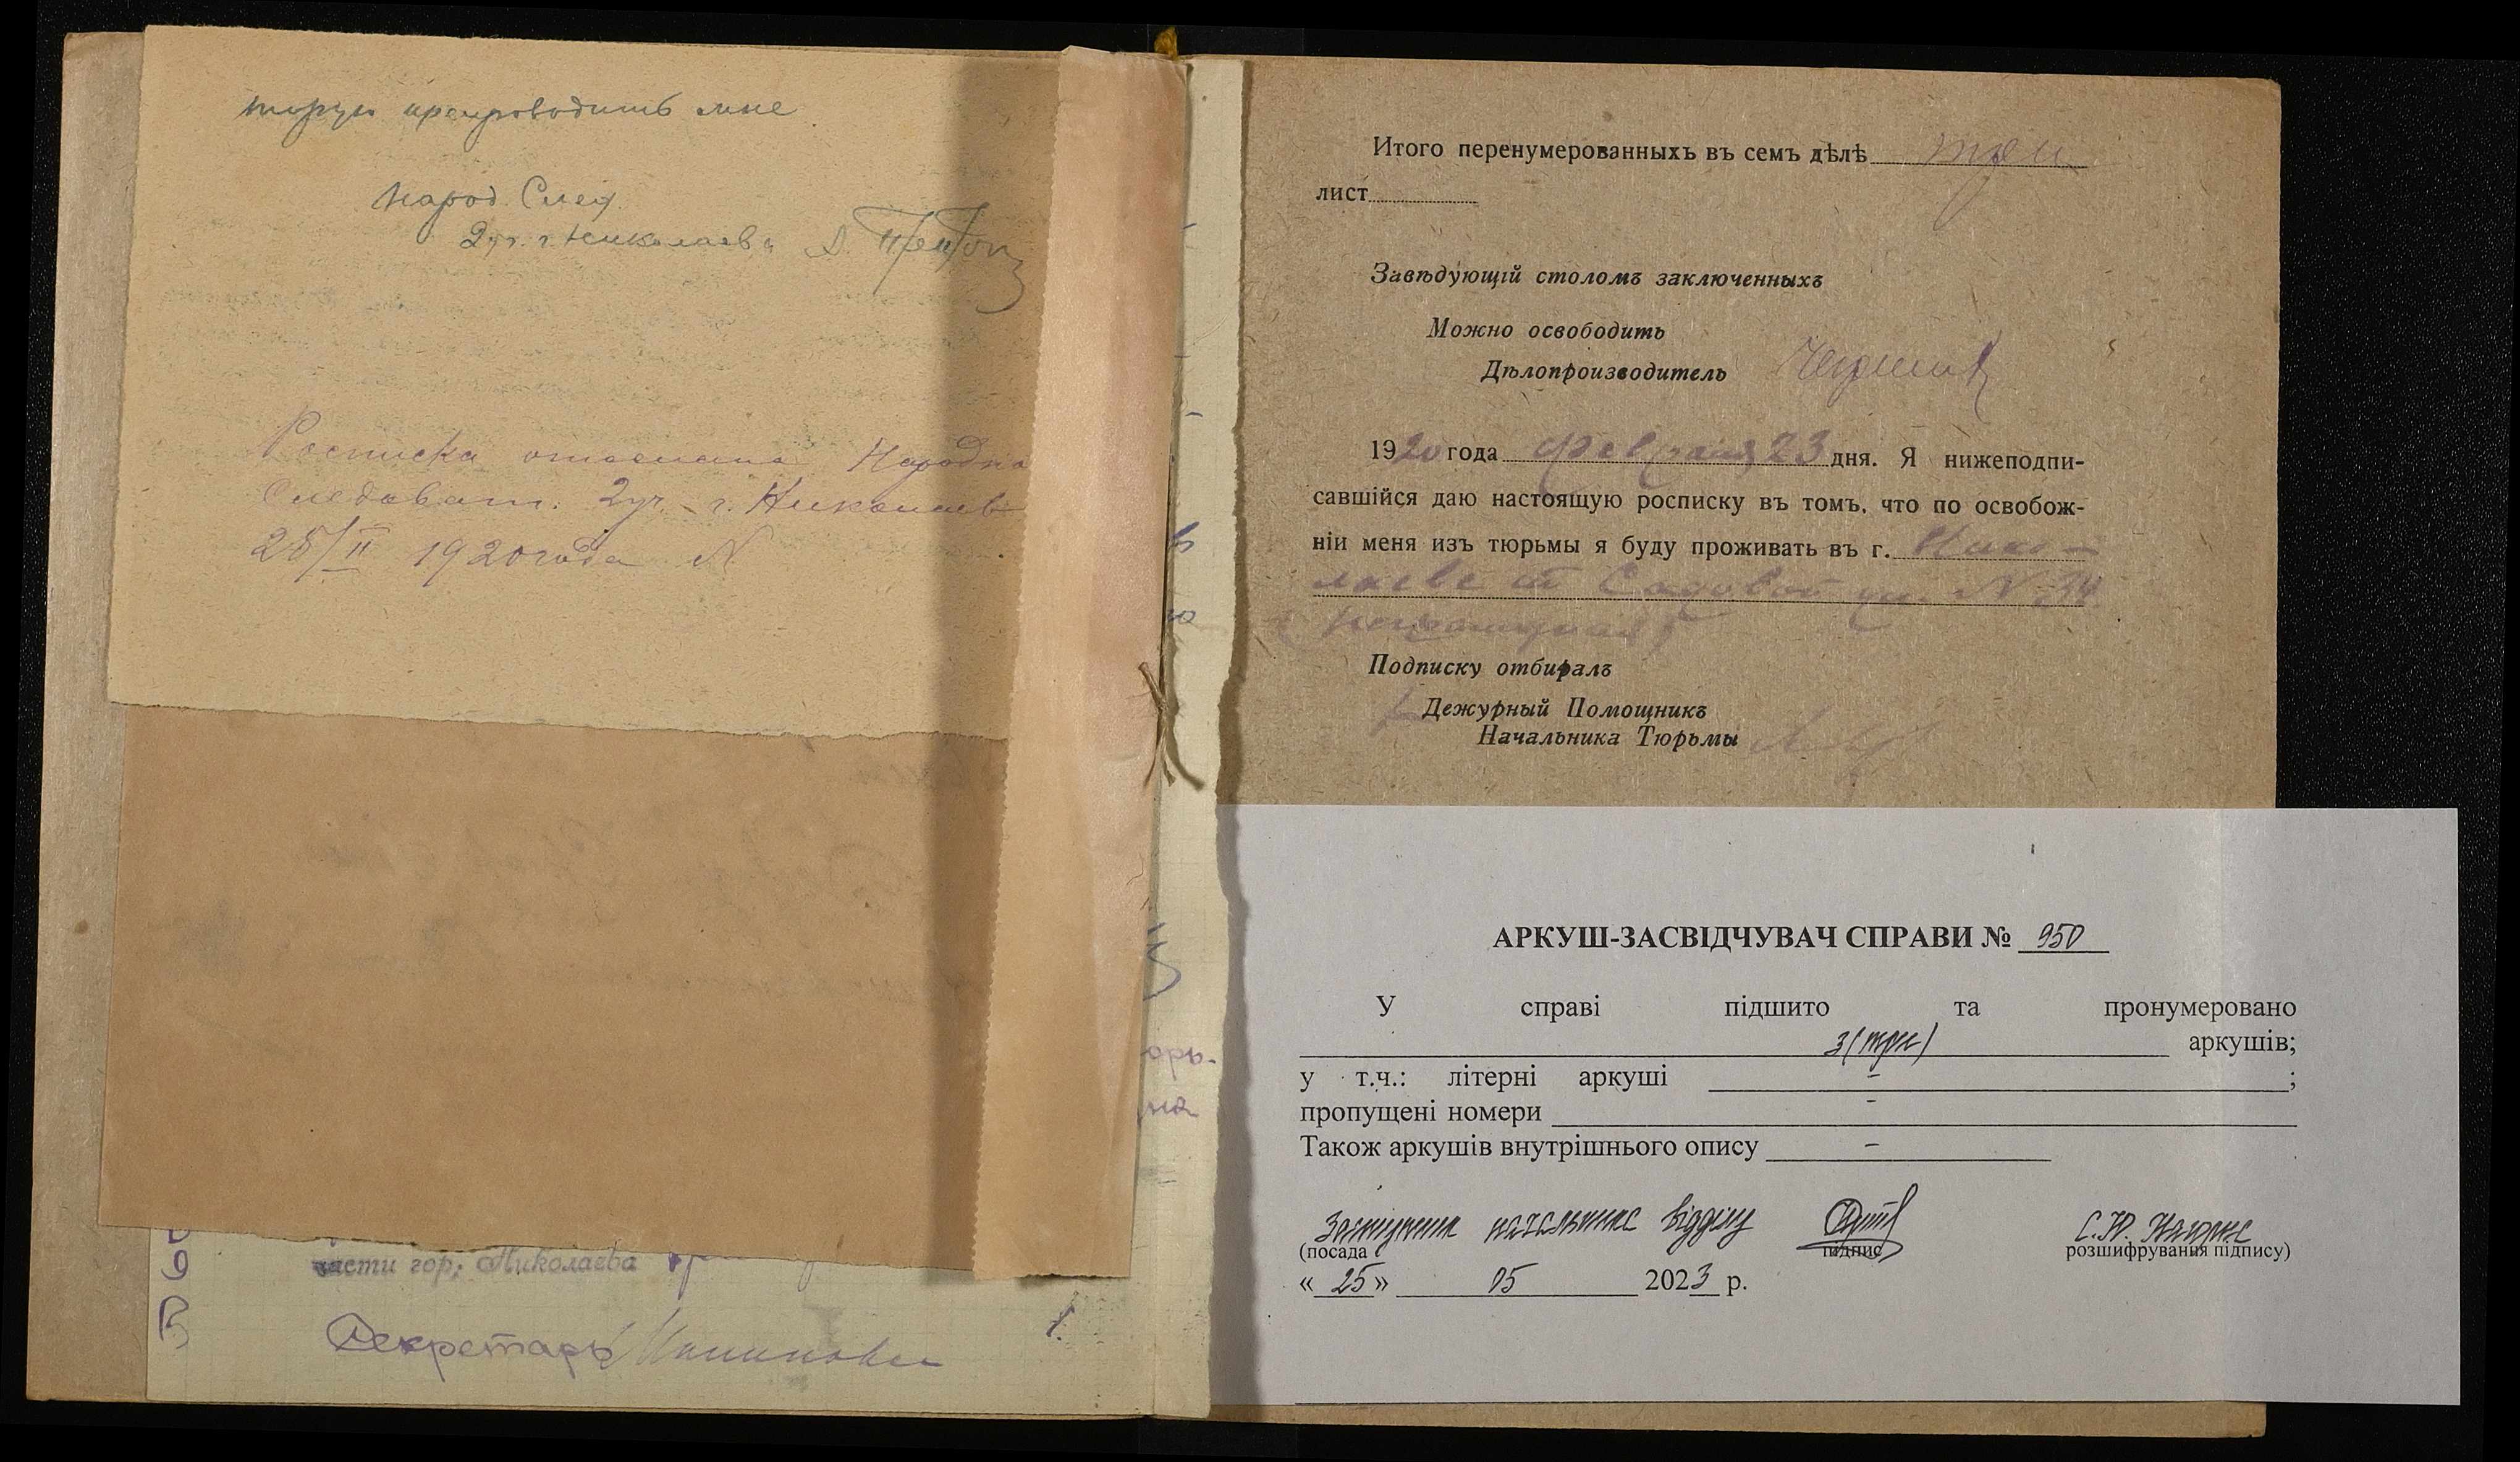 торую препроводить мне
Народ. След.
2 уч. г. Николаева
Росписка отослана Народно
Следоват. 2 уч. г. Николаев
25/II 1920 года N
части гор. Николаева
Секретарь
Итого перенумерованныхъ въ семъ дѣлѣ три
лист
Завѣдующій столомъ заключенныхъ
Можно освободить
Дѣлопроизводитель
1920 года февраля 23 дня. Я нижеподпи-
савшійся даю настоящую росписку въ томъ, что по освобож-
ніи меня изъ тюрьмы я буду проживать въ г. Нико-
лаеве по Садовой ул. № 34
Подписку отбиралъ
Дежурный Помощникъ
Начальника Тюрьмы
АРКУШ-ЗАСВІДЧУВАЧ СПРАВИ № 950
У справі підшито та пронумеровано
3 (три) аркушів;
у т.ч.: літерні аркуші - ;
пропущені номери -
Також аркушів внутрішнього опису -
Заступник начальника відділу
(посада підпис розшифрування підпису)
« 25 » 05 2023 р.